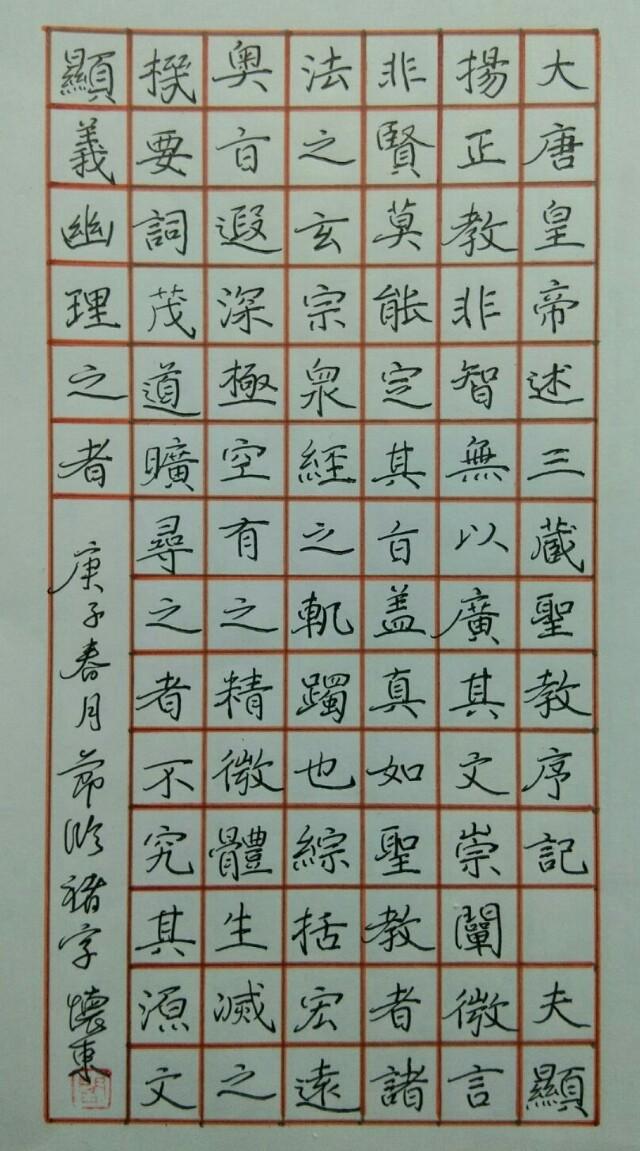 大唐皇帝述三藏聖教序記 夫顯
揚正教非智無以廣其文崇闡微言
非賢莫能定其旨盖真如聖教者諸
法之玄宗衆經之軌躅也綜括宏遠
奥旨遐深極空有之精微體生滅之
機要詞茂道曠尋之者不究其源文
顯義幽理之者
庚子春月節臨褚字懷東